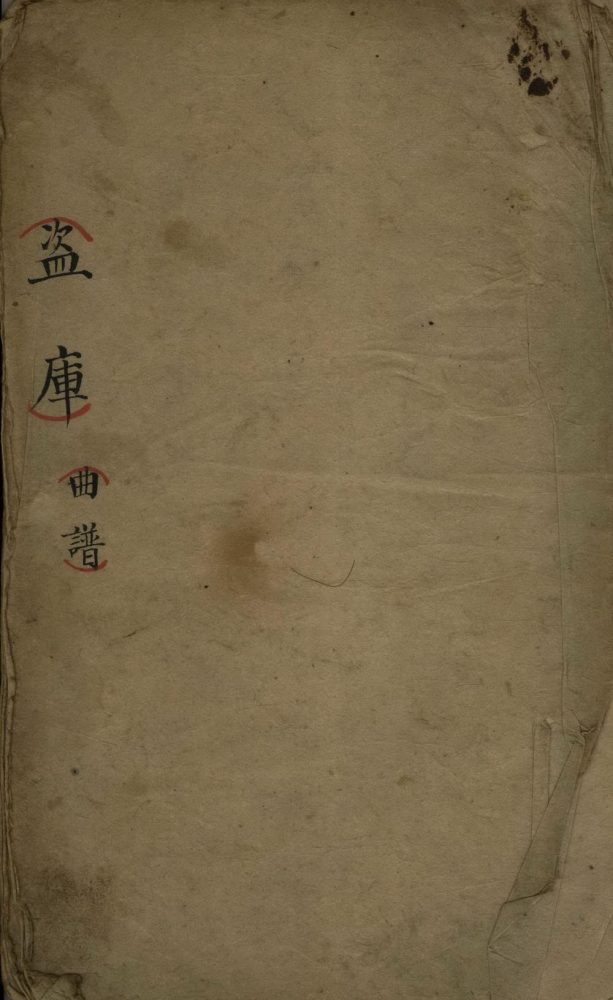 盗庫
曲譜